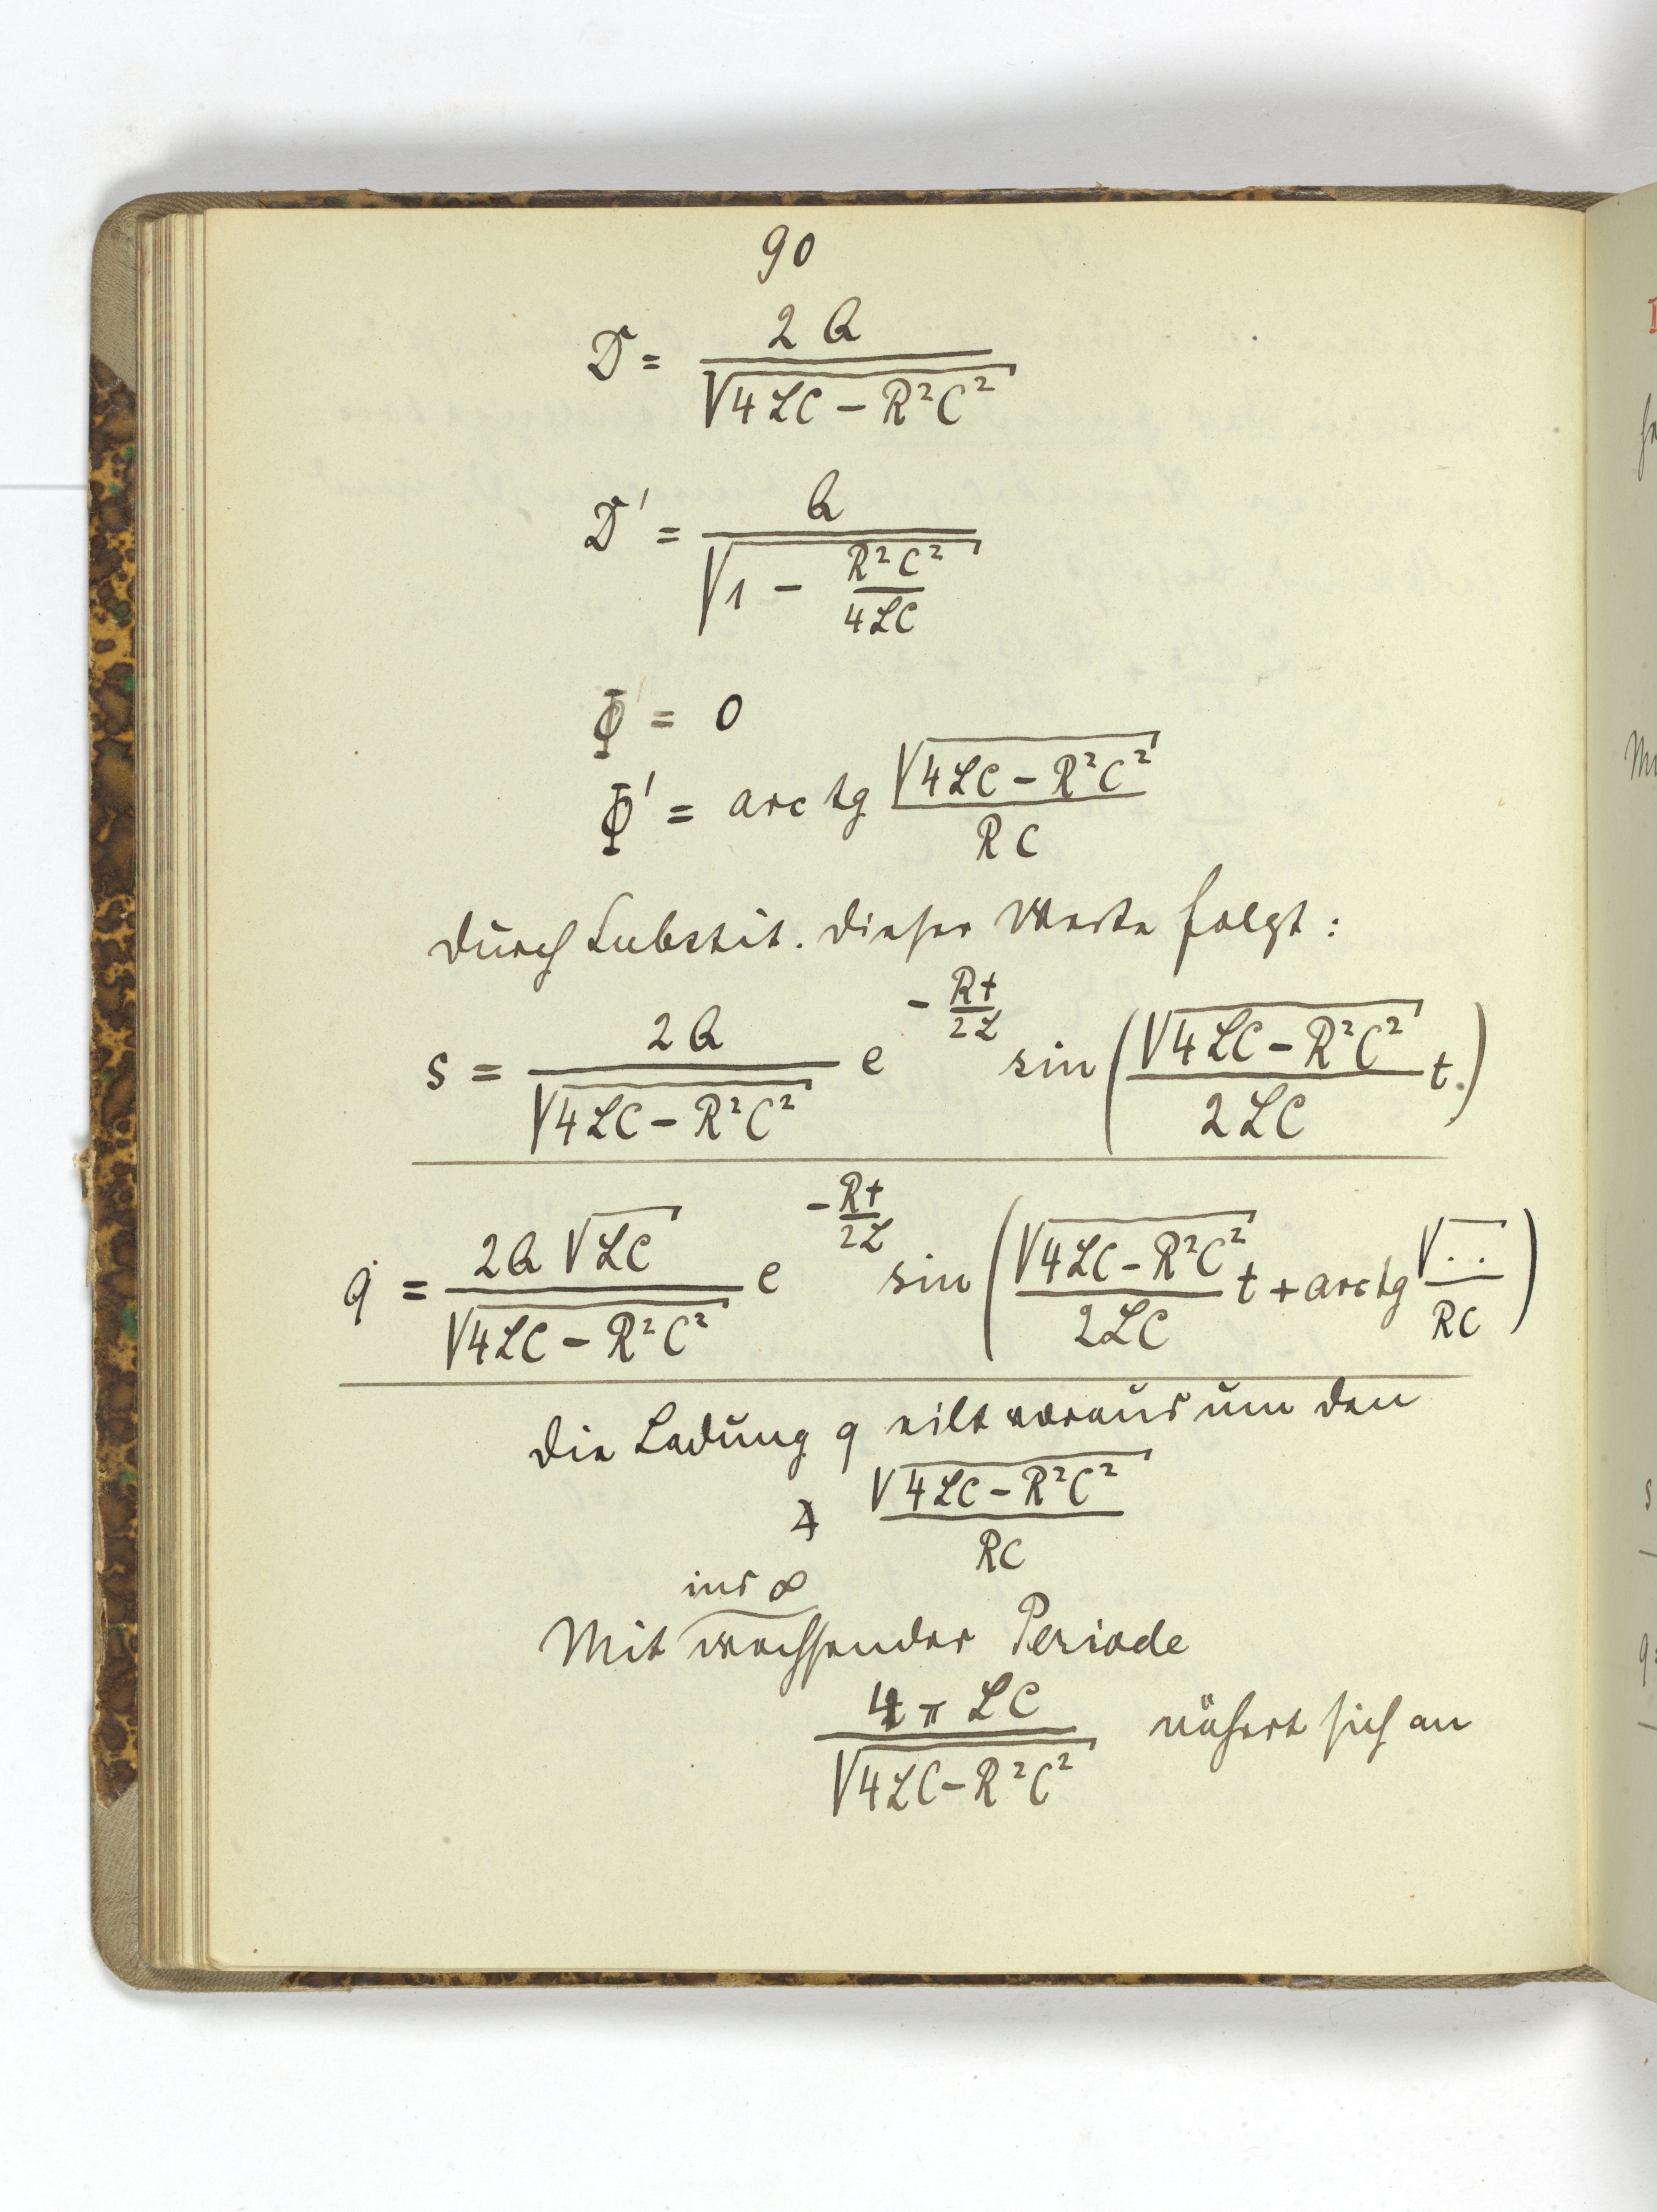 90
D = 2Q / √(4LC − R²C²)
D' = Q / √(1 − R²C²/4LC)
Φ = 0
Φ' = arc tg √(4LC − R²C²) / RC
Durch Substit. dieser Werte folgt:
s = 2Q / √(4LC − R²C²) e^(−Rt/2L) sin(√(4LC − R²C²) / 2LC t.)
q = 2Q √LC / √(4LC − R²C²) e^(−Rt/2L) sin(√(4LC − R²C²) / 2LC t + arctg √.. / RC)
Die Ladung q eilt voraus um den
∢ √(4LC − R²C²) / RC
ins ∞
Mit wachsender Periode
4π LC / √(4LC − R²C²) nähert sich an